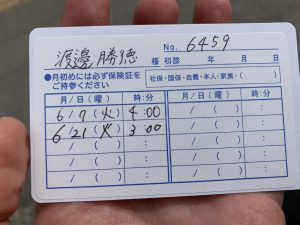 No. 6459
渡邉 勝徳 様 初診 年 月 日
●月初めには必ず保険証を
ご持参ください
社保・国保・自費・本人・家族・( )
月/日(曜) 時:分 月/日(曜) 時:分
6/7(火) 4:00 /( ) :
6/21(火) 3:00 /( ) :
/( ) : /( ) :
/( ) : /( ) :
/( ) : /( ) :